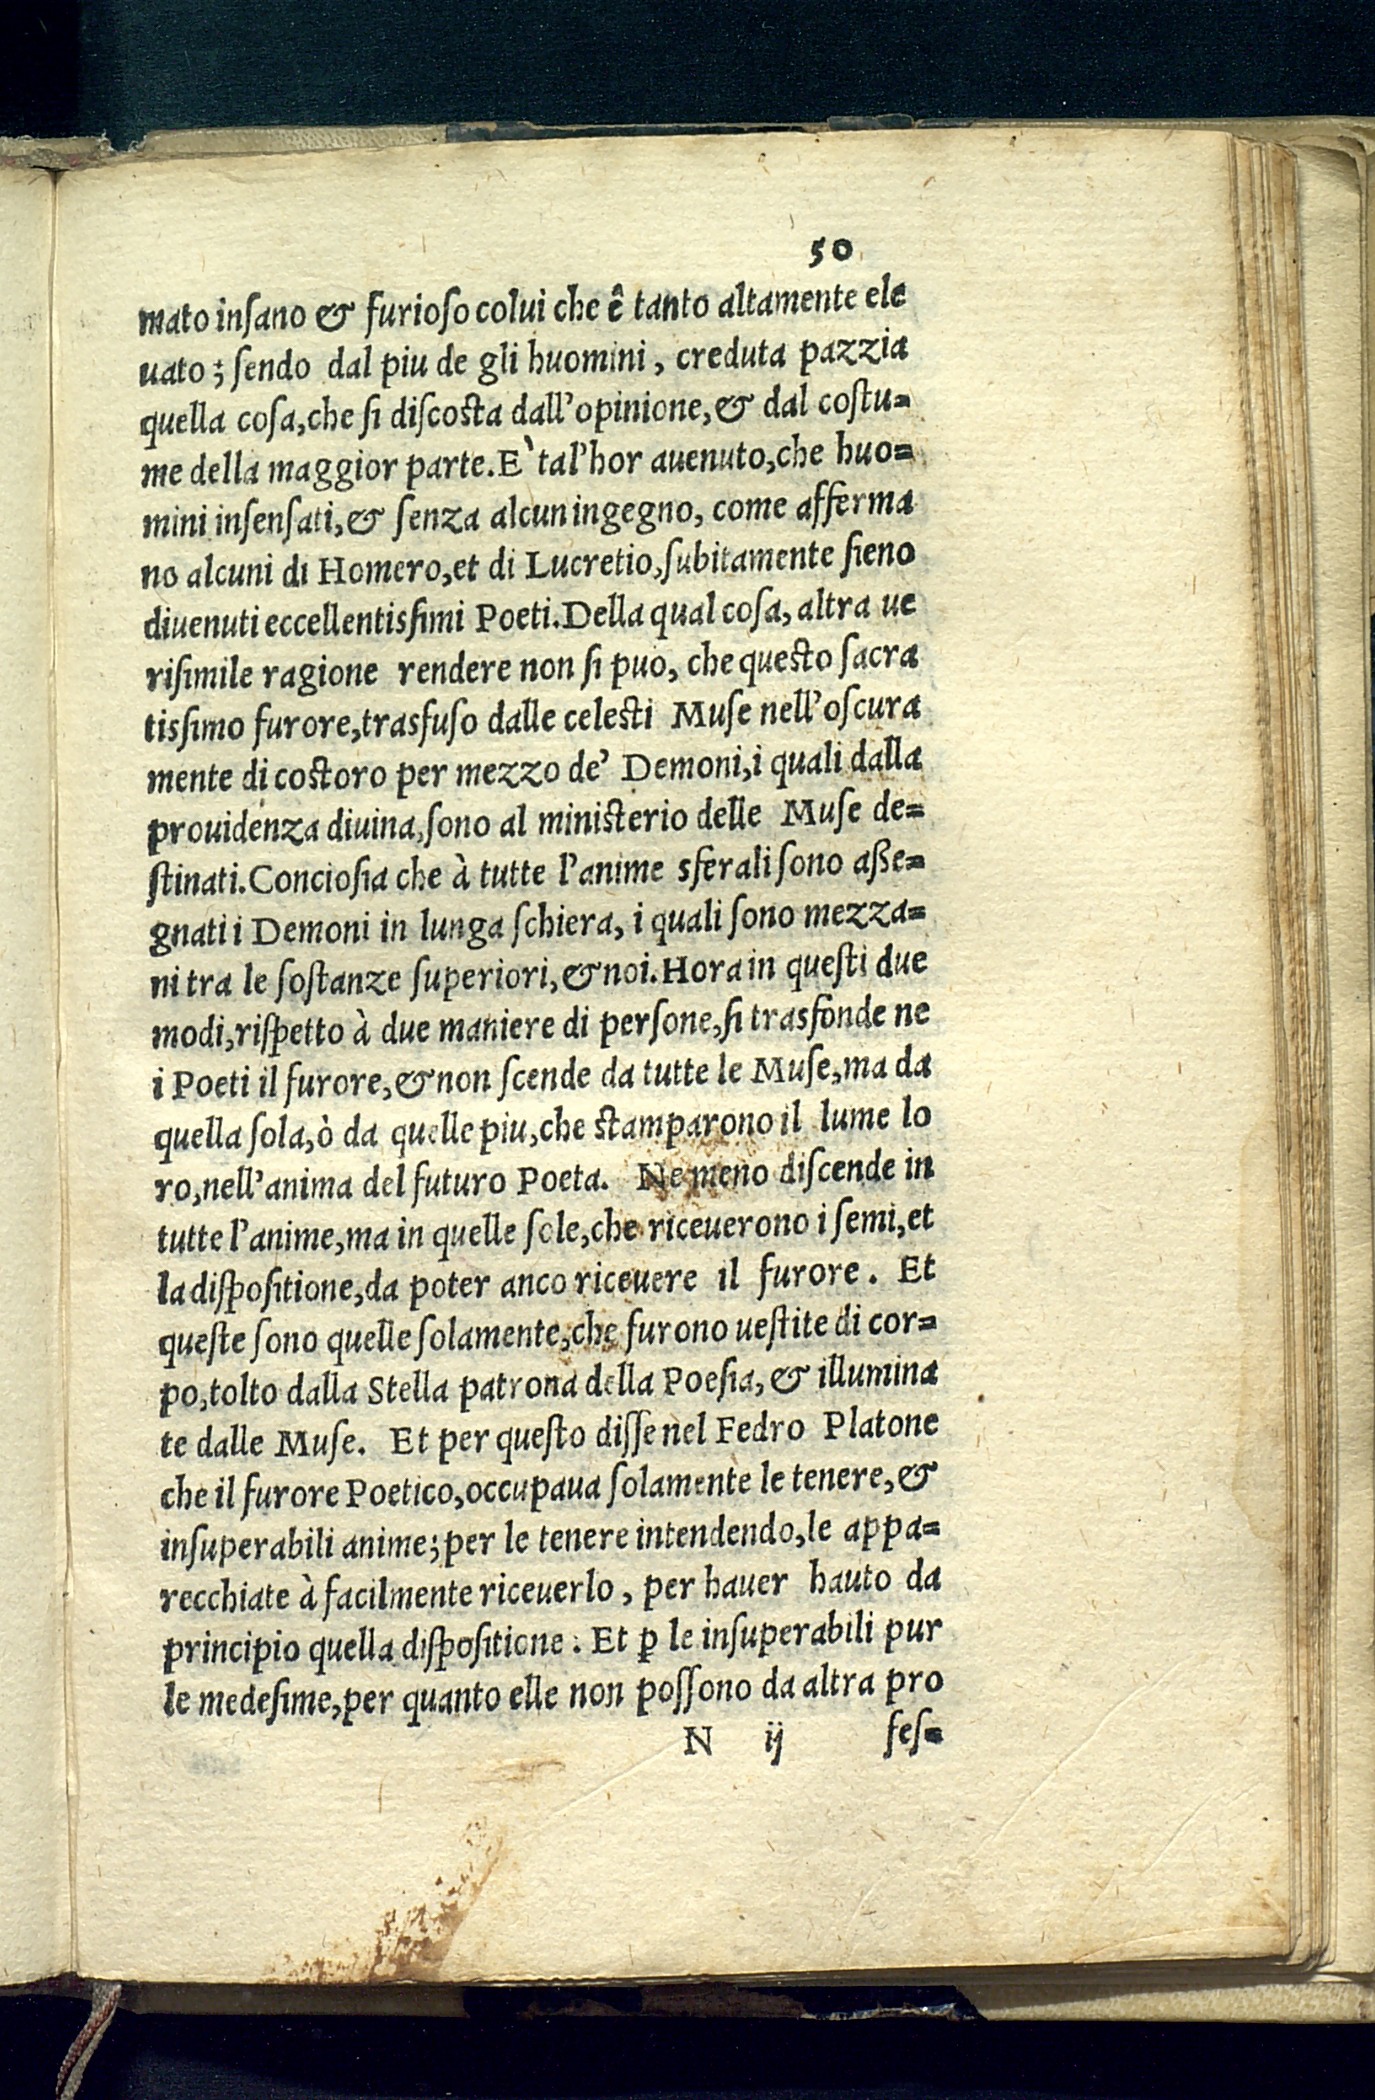 50
mato insano & furioso colui che ê tanto altamente ele
uato; sendo dal piu de gli huomini, creduta pazzia
quella cosa, che si discosta dall'opinione, & dal costu=
me della maggior parte. E` tal'hor auenuto, che huo=
mini insensati, & senza alcun ingegno, come afferma
no alcuni di Homero, et di Lucretio, subitamente sieno
diuenuti eccellentissimi Poeti. Della qual cosa, altra ue
risimile ragione rendere non si puo, che questo sacra
tissimo furore, trasfuso dalle celesti Muse nell'oscura
mente di costoro per mezzo de' Demoni, i quali dalla
prouidenza diuina, sono al ministerio delle Muse de=
stinati. Conciosia che à tutte l'anime sferali sono aße=
gnati i Demoni in lunga schiera, i quali sono mezza=
ni tra le sostanze superiori, & noi. Hora in questi due
modi, rispetto à due maniere di persone, si trasfonde ne
i Poeti il furore, & non scende da tutte le Muse, ma da
quella sola, ò da quelle piu, che stamparono il lume lo
ro, nell'anima del futuro Poeta. Ne meno discende in
tutte l'anime, ma in quelle sole, che riceuerono i semi, et
la dispositione, da poter anco riceuere il furore. Et
queste sono quelle solamente, che furono uestite di cor=
po, tolto dalla Stella patrona della Poesia, & illumina
te dalle Muse. Et per questo disse nel Fedro Platone
che il furore Poetico, occupaua solamente le tenere, &
insuperabili anime; per le tenere intendendo, le appa=
recchiate à facilmente riceuerlo, per hauer hauto da
principio quella dispositione. Et ꝑ le insuperabili pur
le medesime, per quanto elle non possono da altra pro
N ij fes=